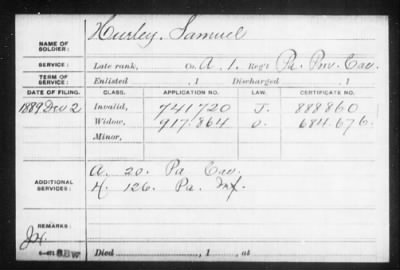 NAME OF SOLDIER: Hurley, Samuel
SERVICE: Late rank, Co. A, 1. Reg't Pa. Prov. Cav.
TERM OF SERVICE: Enlisted , 1 Discharged , 1
DATE OF FILING. CLASS. APPLICATION NO. LAW. CERTIFICATE NO.
1889 Dec 2 Invalid, 741.720 J. 888860
Widow, 917.864 O. 684.676
Minor,
ADDITIONAL SERVICES: A. 20. Pa Cav.
H. 126. Pa. Inf.
REMARKS:
BBW
Died , 1 , at